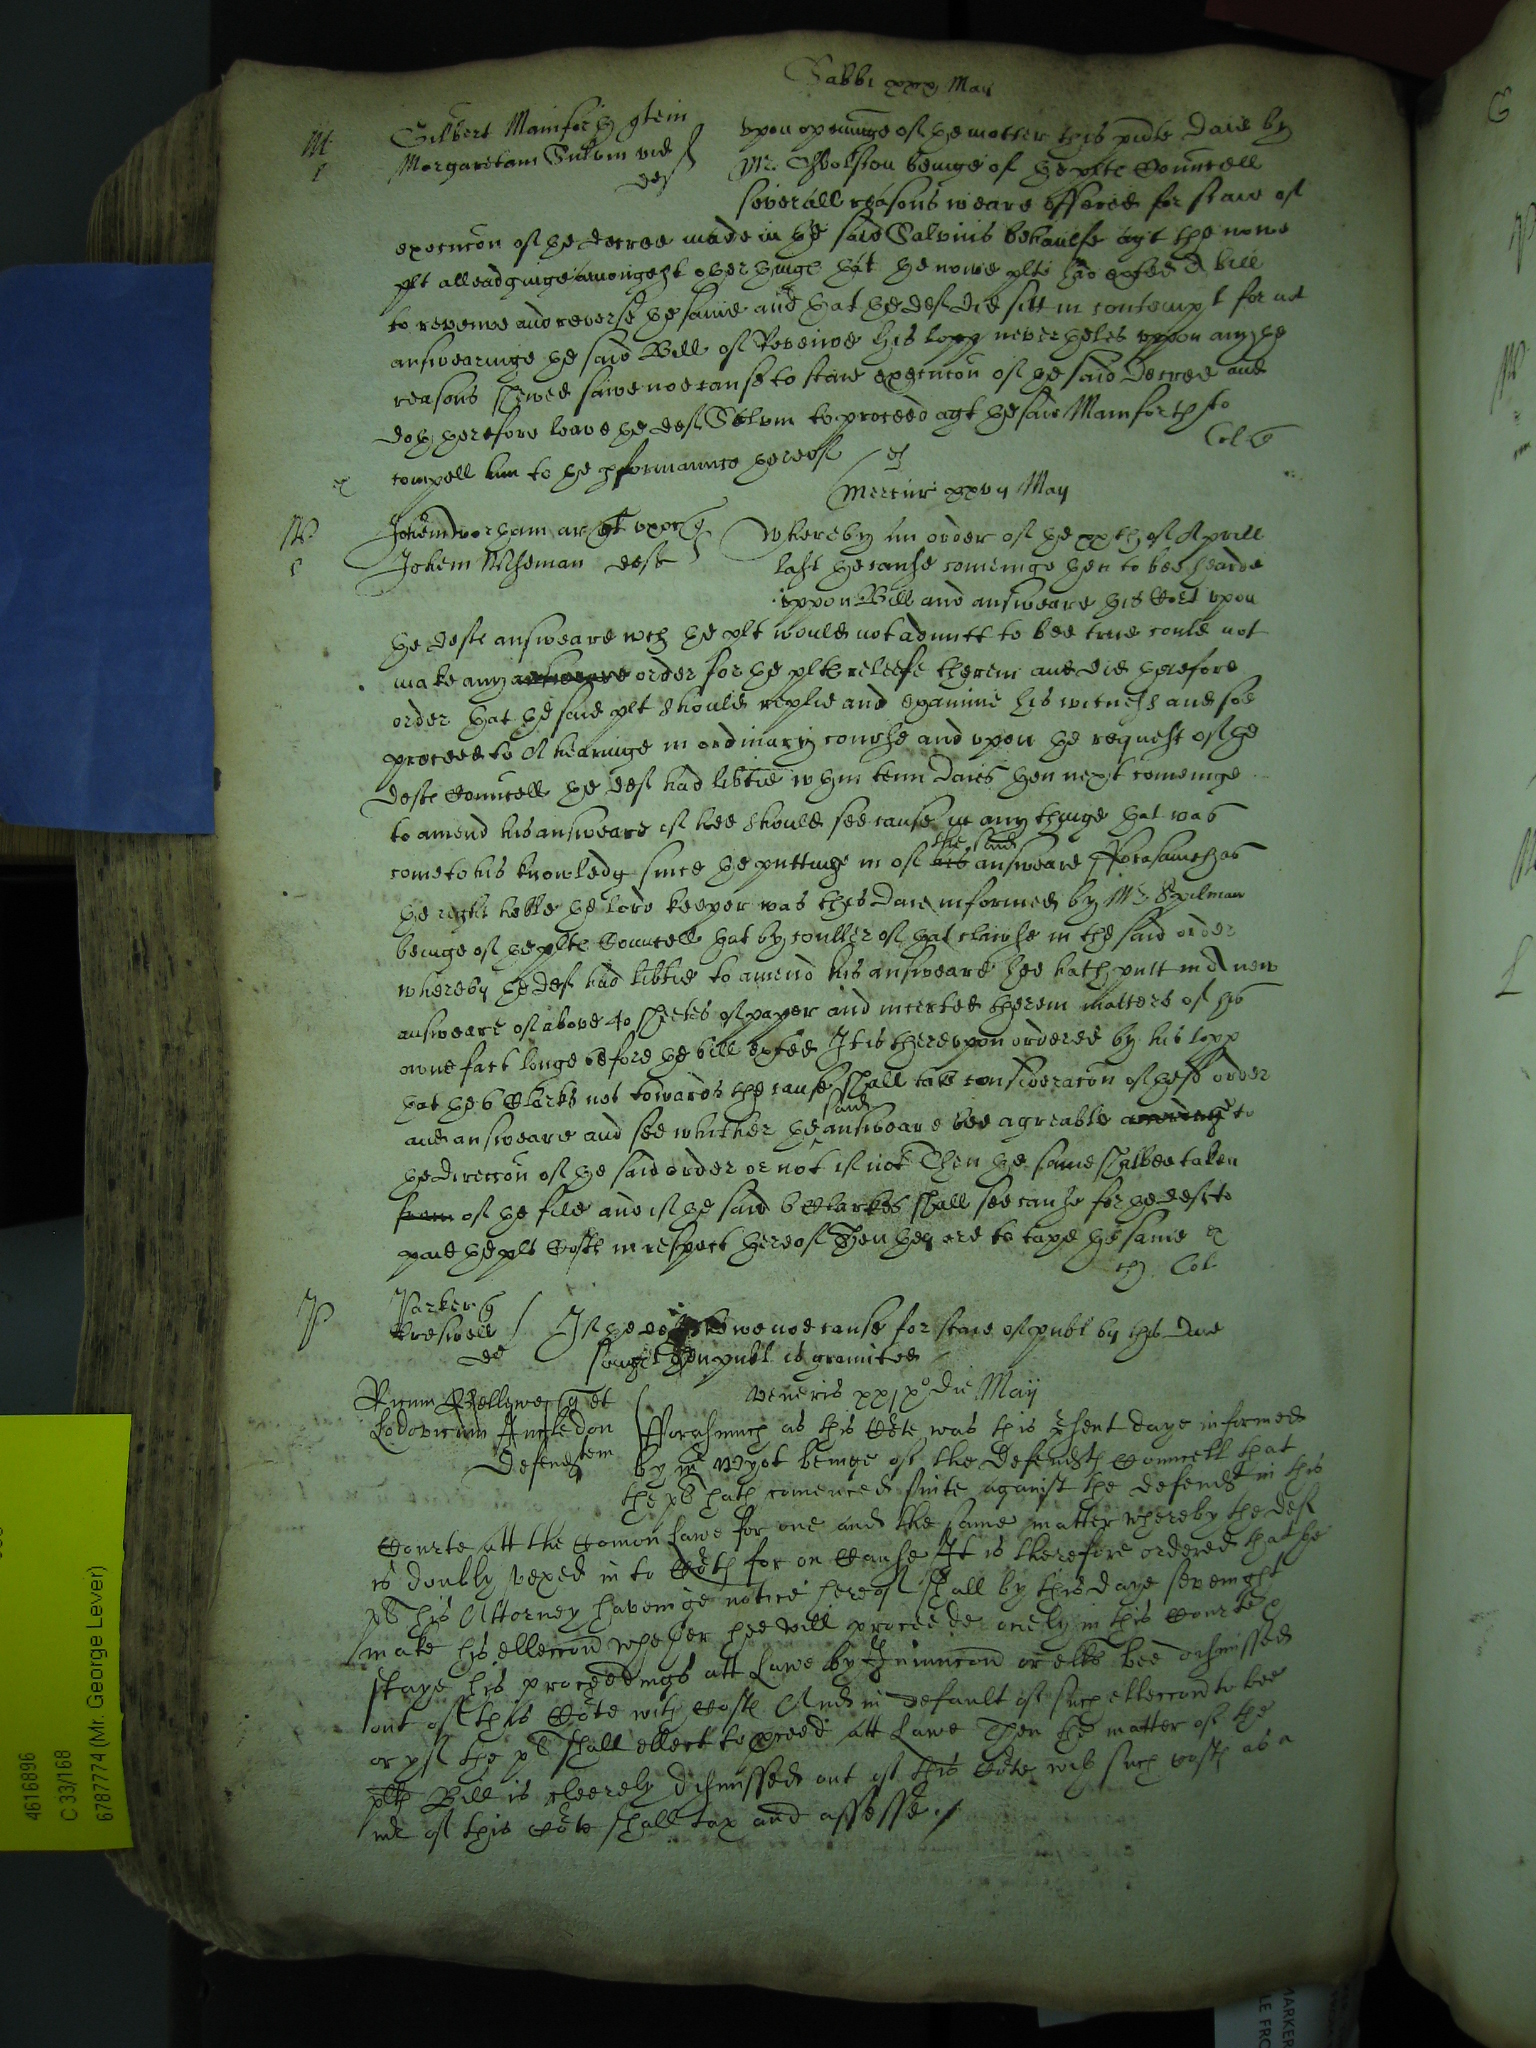 Sabbi xxv May
Gilbert Mainforth q tem
Margaretam Sulvin vid
def
vpon openinge of the matter this pnte daie by
Mr. Cholston beinge of the plts Councell
severall reasons weare offered for staie of
execucon of the decree made in the said Salvins behaulfe agt the nowe
plt alleadginge amongest other things that the nowe plte had exhed a bill
to reveiwe and reverse the same and that the def did sitt in contempt for not
answearinge the said Bill of Reveiwe his lopp neverthelės vppon any the
reasons shewed sawe noe cause to staie execucon of the said decree and
doth therefore leave the def Selvin to proceed agt the said Mainforth to
compell him to the pformaunce thereof
Mercur xxvij May
whereby an order of the xxth of Aprill
Johem Wiseman deft
last the cause cominge then to bee heard
vppon Bill and answeare this Cort vpon
the defts answeare wch the plt would not admitt to bee true could not
make any answeare order for the plts releefe therein and did therefore
order that the said plt should replie and examine his witness and soe
proceed to A hearinge in ordinary course and vpon the request of the
defts Councell the def had libtie wthin tenn daies then next cominge
to amend his answeare if hee should see cause in any thinge that was
the said
come to his knowledg since the puttinge in of his answeare Forasmuch as
the right hoble the lord keeper was this daie informed by Mr. Spilman
beinge of the plts Councell that by couller of that clawse in the said order
whereby the def had libtie to amend his answeare hee hath putt in a new
answeare of above 40 sheetes of paper and incerted therein matters of his
owne fact longe before the bill exhed It is therevpon ordered by his lopp
that the 6 Clarks not towards the cause shall take consideracon of the sd order
said
and answeare and see whither the answeare bee agreable accordinge to
the direccon of the said order or not if not Then the same shalbee taken
from of the file and if the said 6 Clarkes shall see cause for the deft to
paie the plt Costs in respect thereof Then they are to taxe the same
Col
Parker q
Creswell
def
If the def shewe noe cause for staie of publ by this daie
sevenight then publ is graunted
Veneris xxixo die Maij
Ricum Bellewe q et
Lodovicum Incledon
Defendtem
Forasmuch as this Corte was this psent daye informed
by mr Wyot beinge of the Defendts Councell that
the pl hath comenced suite against the defendt in this
Courte att the Comon Lawe for one and the same matter whereby the def
is doubly vexed in to Corts for on Cause It is therefore ordered that the
pl his Attorney haveinge notice hereof shall by this daye sevenight
make his elleccon whether hee will proceede onely in this Courte &
staye his proceedings att Lawe by Iniunccon or elts bee dismissed
out of this Corte with Costs And in default of such elleccon to bee
or yf the pl shall ellect to pceed att Lawe Then the matter of the
plts Bill is cleerely dismissed out of this Corte wth such costs as a
mr of this Corte shall tax and assesse
4616896
C 33/168
6787774 (Mr. George Lever)